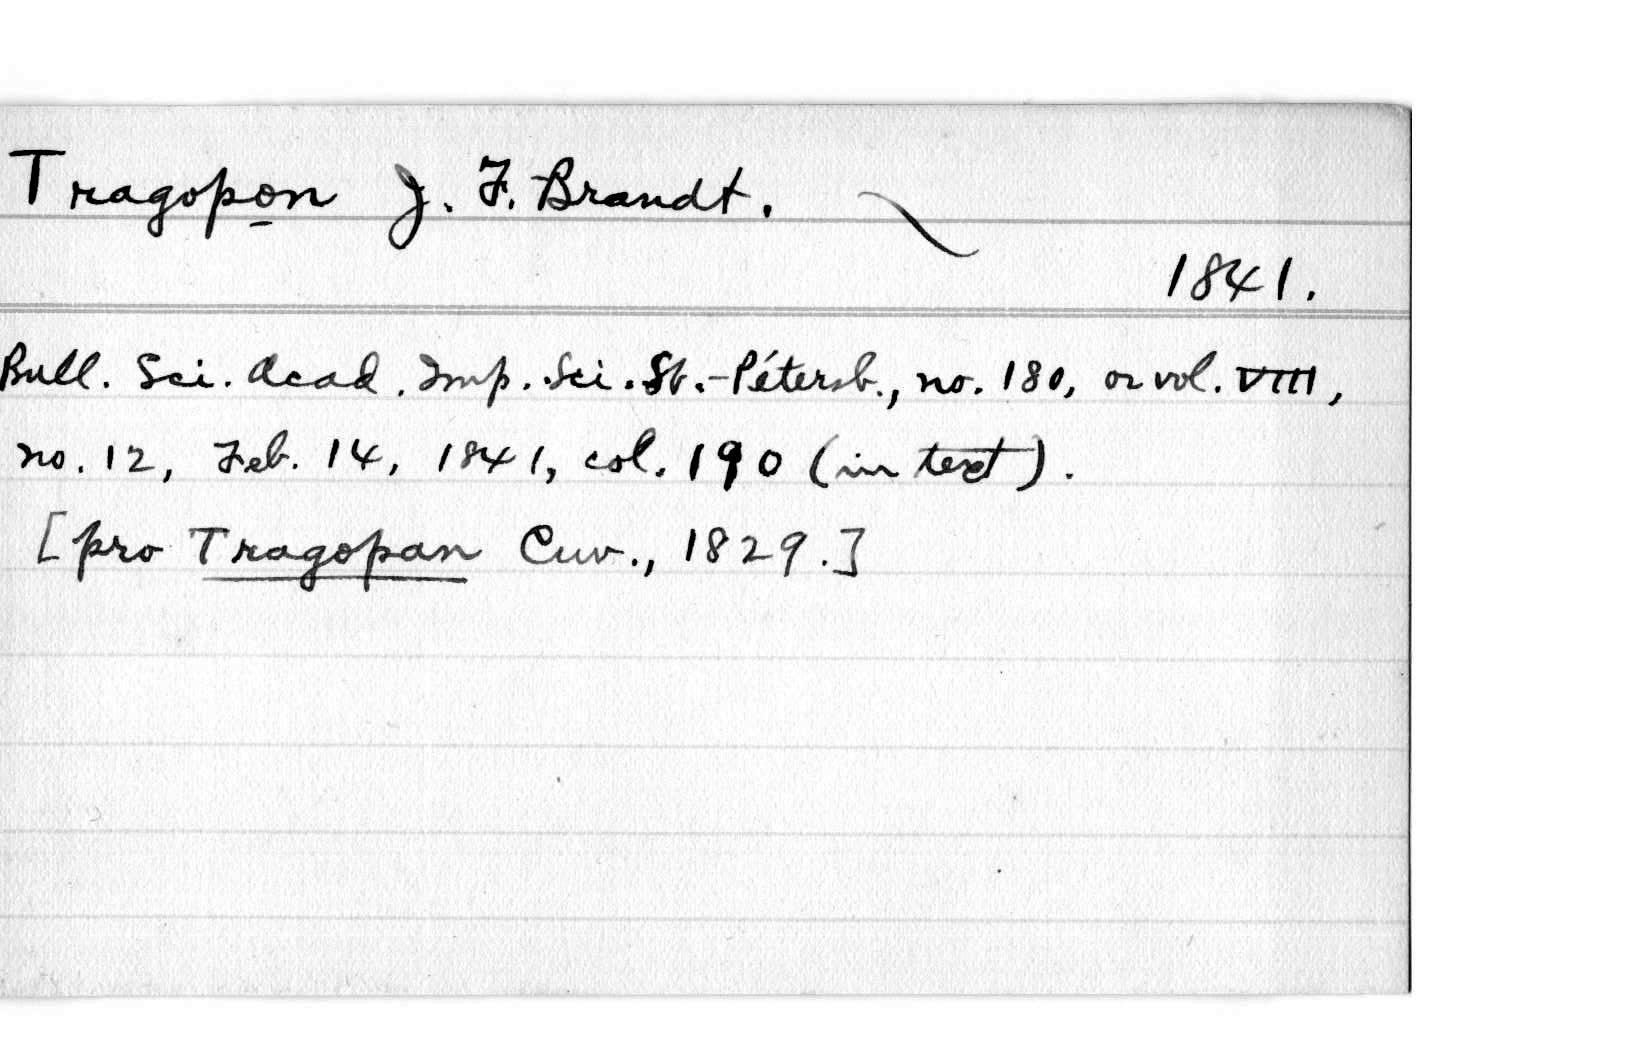 Tragopon J. F. Brandt.
1841.
Bull. Sci. Acad. Imp. Sci. St.-Pétersb., no. 180, or vol. VIII,
no. 12, Feb. 14, 1841, col. 190 (in text).
[pro Tragopan Cuv., 1829.]